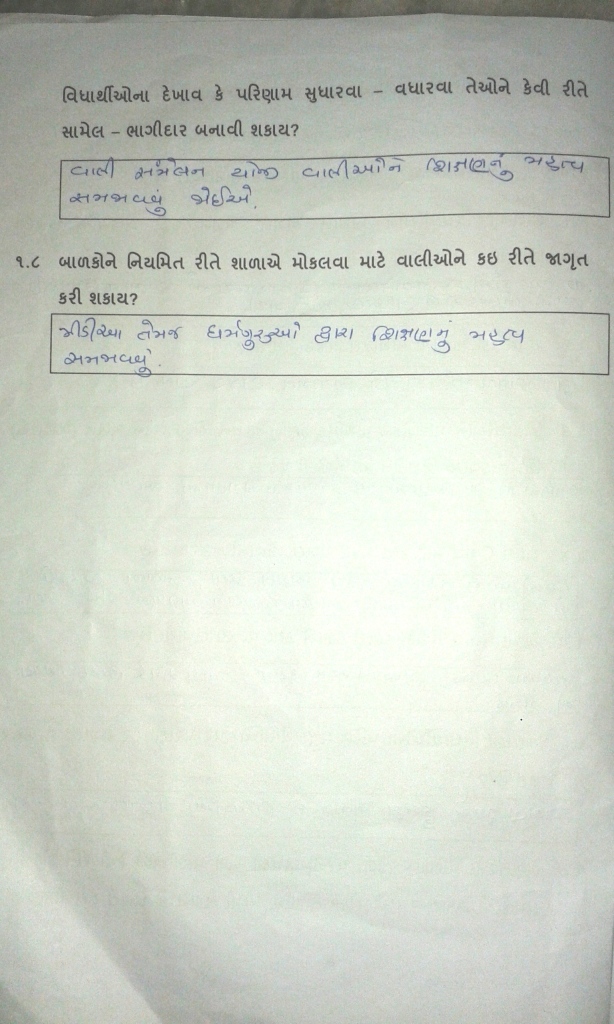 વિદ્યાર્થીઓના દેખાવ કે પરિણામ સુધારવા – વધારવા તેઓને કેવી રીતે
સામેલ – ભાગીદાર બનાવી શકાય?
વાલી સંમેલન યોજી વાલીઓને શિક્ષણનું મહત્વ
સમજાવવું જોઈએ.
૧.૮ બાળકોને નિયમિત રીતે શાળાએ મોકલવા માટે વાલીઓને કઇ રીતે જાગૃત
કરી શકાય?
મીડીઆ તેમજ ધર્મગુરુઓ દ્વારા શિક્ષણનું મહત્વ
સમજાવવું.